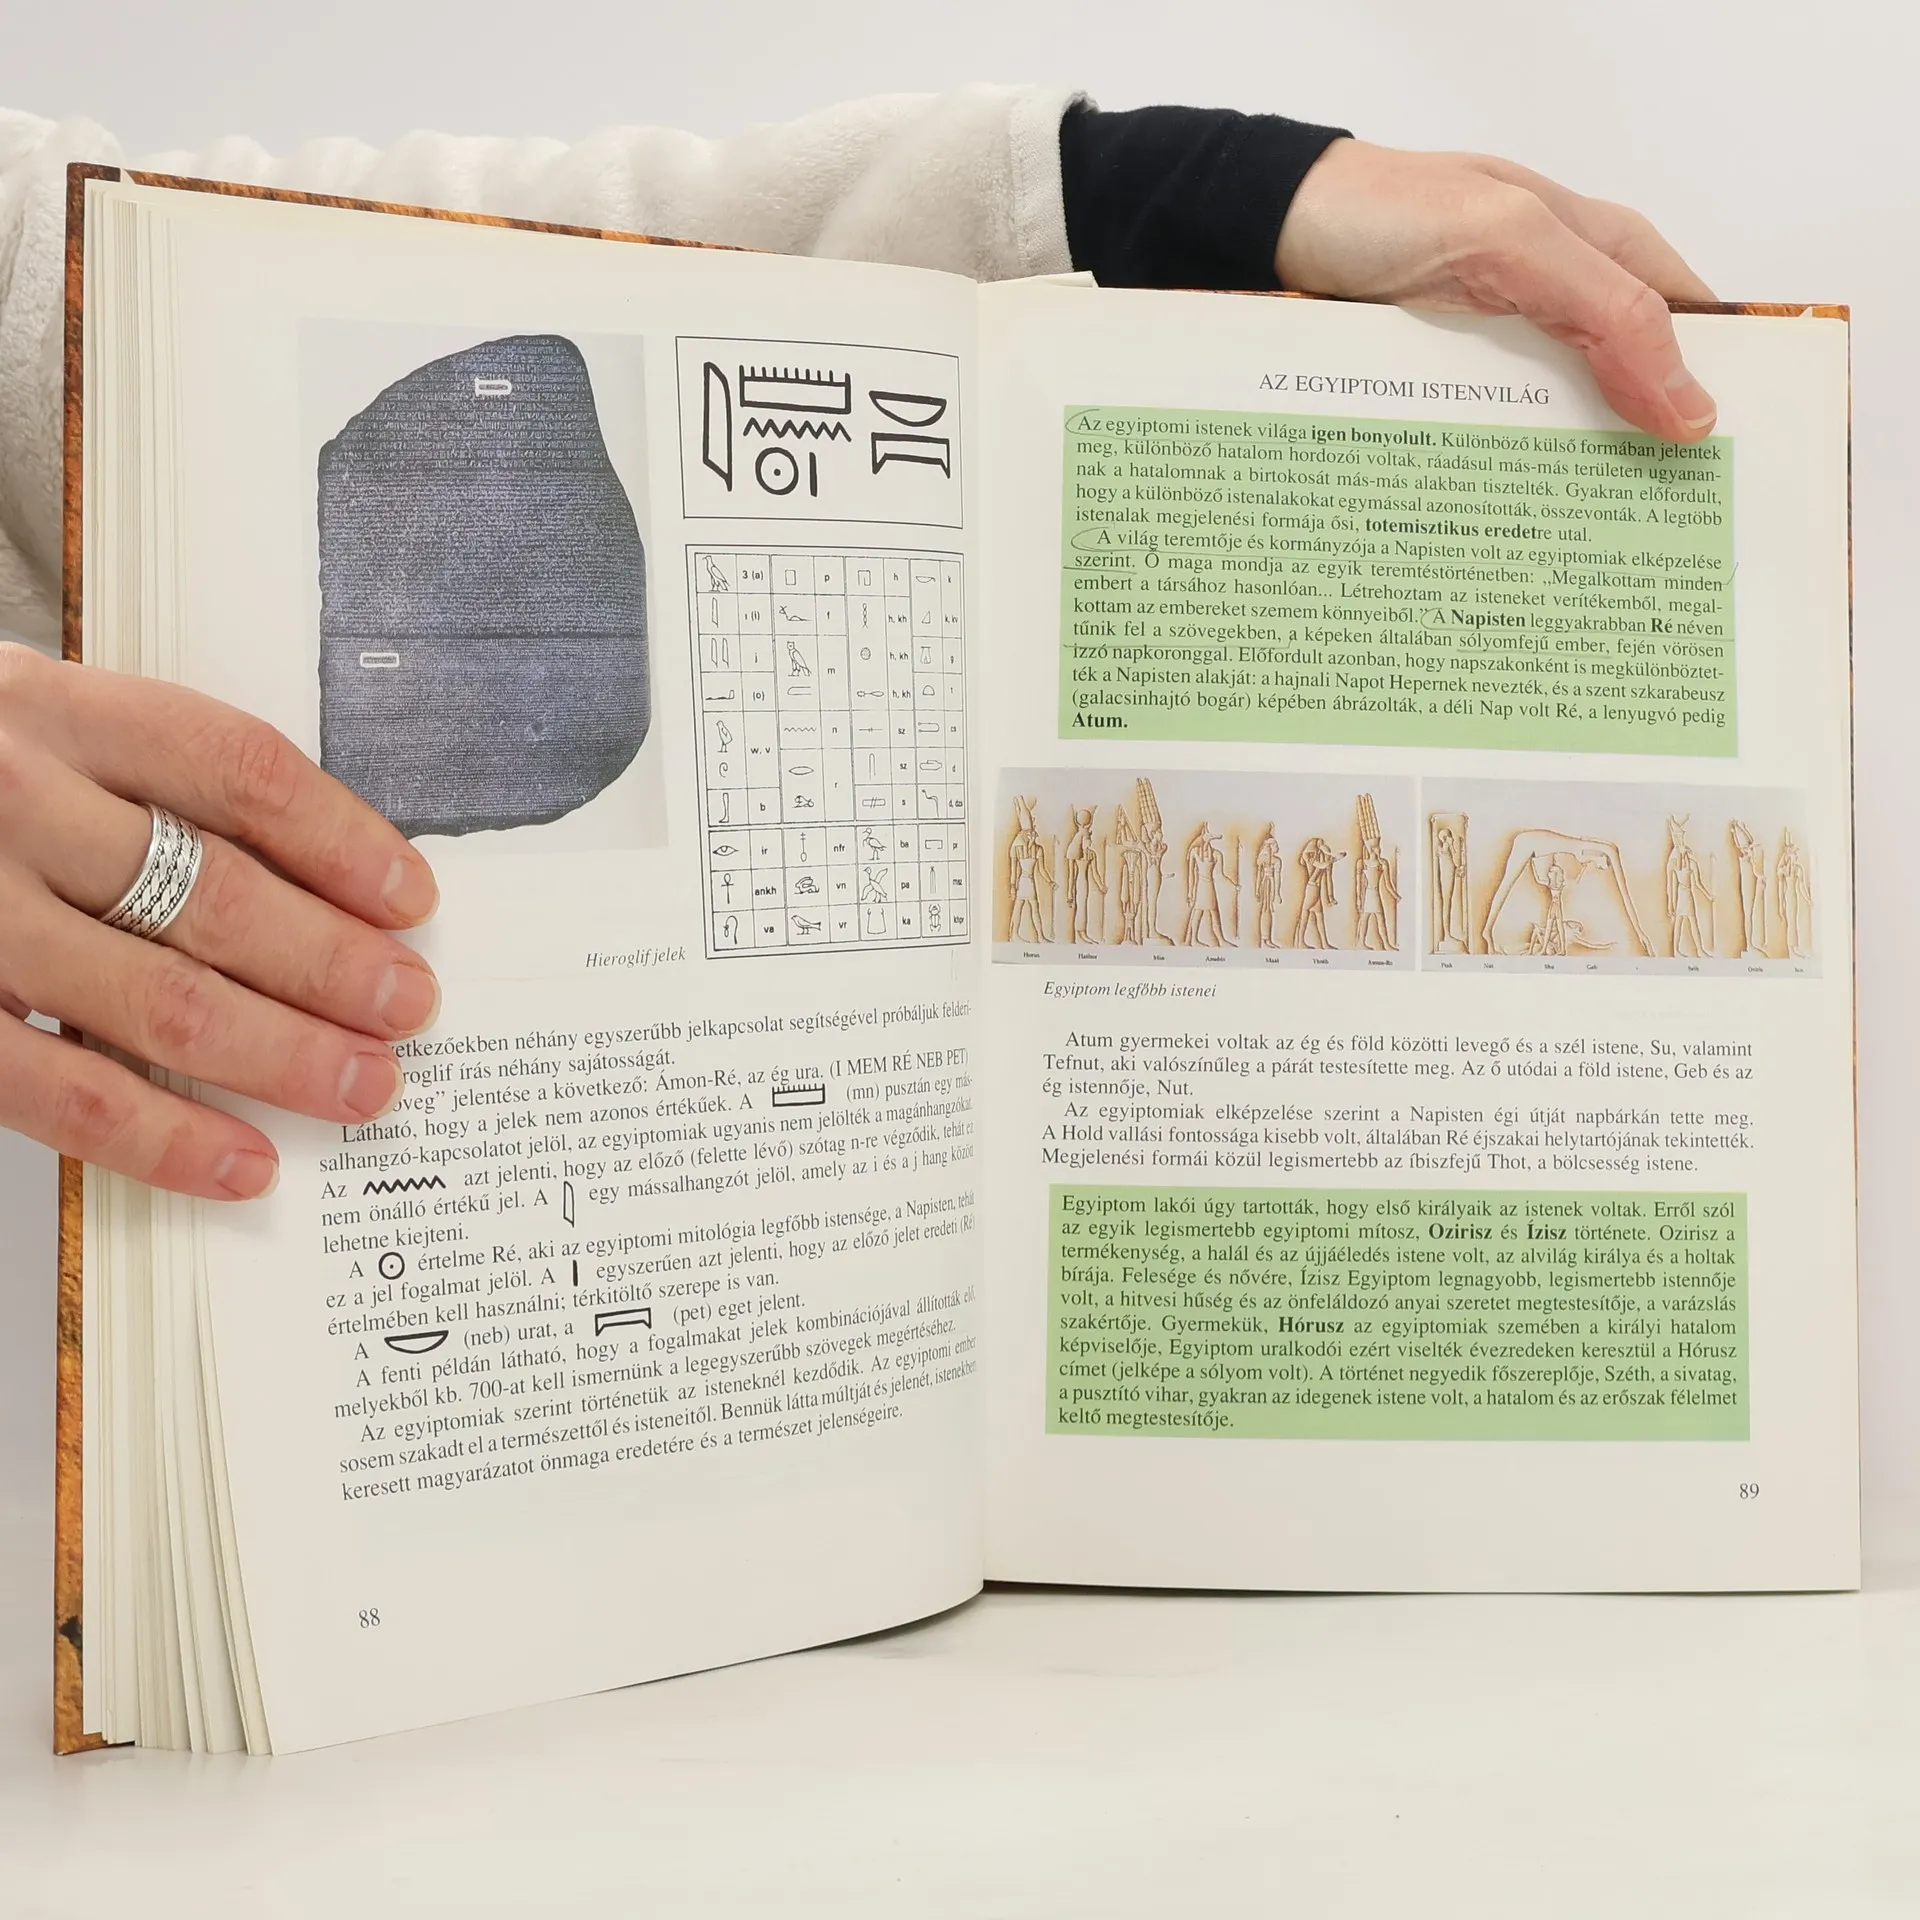 3 (a)
p
h
k
ı (i)
f
h, kh
j
m
h, kh
g
(o)
h, kh
t
w, v
n
sz
r
sz
d
b
s
ir
nfr
ba
pr
ankh
vn
pa
va
vr
ka
Hieroglif jelek
etkezőekben néhány egyszerűbb jelkapcsolat segítségével próbáljuk felderí-
roglif írás néhány sajátosságát.
öveg” jelentése a következő: Ámon-Ré, az ég ura. (I MEM RÉ NEB PET)
Látható, hogy a jelek nem azonos értékűek. A (mn) pusztán egy más-
salhangzó-kapcsolatot jelöl, az egyiptomiak ugyanis nem jelölték a magánhangzókat.
Az azt jelenti, hogy az előző (felette lévő) szótag n-re végződik, tehát ez
nem önálló értékű jel. A egy mássalhangzót jelöl, amely az i és a j hang között
lehetne kiejteni.
A értelme Ré, aki az egyiptomi mitológia legfőbb istensége, a Napisten, tehát
ez a jel fogalmat jelöl. A egyszerűen azt jelenti, hogy az előző jelet eredeti (Ré)
értelmében kell használni; térkitöltő szerepe is van.
A (neb) urat, a (pet) eget jelent.
A fenti példán látható, hogy a fogalmakat jelek kombinációjával állították elő,
melyekből kb. 700-at kell ismernünk a legegyszerűbb szövegek megértéséhez.
Az egyiptomiak szerint történetük az isteneknél kezdődik. Az egyiptomi ember
sosem szakadt el a természettől és isteneitől. Bennük látta múltját és jelenét, istenekben
keresett magyarázatot önmaga eredetére és a természet jelenségeire.
88
AZ EGYIPTOMI ISTENVILÁG
Az egyiptomi istenek világa igen bonyolult. Különböző külső formában jelentek
meg, különböző hatalom hordozói voltak, ráadásul más-más területen ugyanan-
nak a hatalomnak a birtokosát más-más alakban tisztelték. Gyakran előfordult,
hogy a különböző istenalakokat egymással azonosították, összevonták. A legtöbb
istenalak megjelenési formája ősi, totemisztikus eredetre utal.
A világ teremtője és kormányzója a Napisten volt az egyiptomiak elképzelése
szerint. Ő maga mondja az egyik teremtéstörténetben: „Megalkottam minden
embert a társához hasonlóan... Létrehoztam az isteneket verítékemből, megal-
kottam az embereket szemem könnyeiből.” A Napisten leggyakrabban Ré néven
tűnik fel a szövegekben, a képeken általában sólyomfejű ember, fején vörösen
izzó napkoronggal. Előfordult azonban, hogy napszakonként is megkülönböztet-
ték a Napisten alakját: a hajnali Napot Hepernek nevezték, és a szent szkarabeusz
(galacsinhajtó bogár) képében ábrázolták, a déli Nap volt Ré, a lenyugvó pedig
Atum.
Horus Hathor Min Anubis Maat Thoth Amon-Ré
Ptah Nut Shu Geb Seth Osiris Isis
Egyiptom legfőbb istenei
Atum gyermekei voltak az ég és föld közötti levegő és a szél istene, Su, valamint
Tefnut, aki valószínűleg a párát testesítette meg. Az ő utódai a föld istene, Geb és az
ég istennője, Nut.
Az egyiptomiak elképzelése szerint a Napisten égi útját napbárkán tette meg.
A Hold vallási fontossága kisebb volt, általában Ré éjszakai helytartójának tekintették.
Megjelenési formái közül legismertebb az íbiszfejű Thot, a bölcsesség istene.
Egyiptom lakói úgy tartották, hogy első királyaik az istenek voltak. Erről szól
az egyik legismertebb egyiptomi mítosz, Ozirisz és Ízisz története. Ozirisz a
termékenység, a halál és az újjáéledés istene volt, az alvilág királya és a holtak
bírája. Felesége és nővére, Ízisz Egyiptom legnagyobb, legismertebb istennője
volt, a hitvesi hűség és az önfeláldozó anyai szeretet megtestesítője, a varázslás
szakértője. Gyermekük, Hórusz az egyiptomiak szemében a királyi hatalom
képviselője, Egyiptom uralkodói ezért viselték évezredeken keresztül a Hórusz
címet (jelképe a sólyom volt). A történet negyedik főszereplője, Széth, a sivatag,
a pusztító vihar, gyakran az idegenek istene volt, a hatalom és az erőszak félelmet
keltő megtestesítője.
89